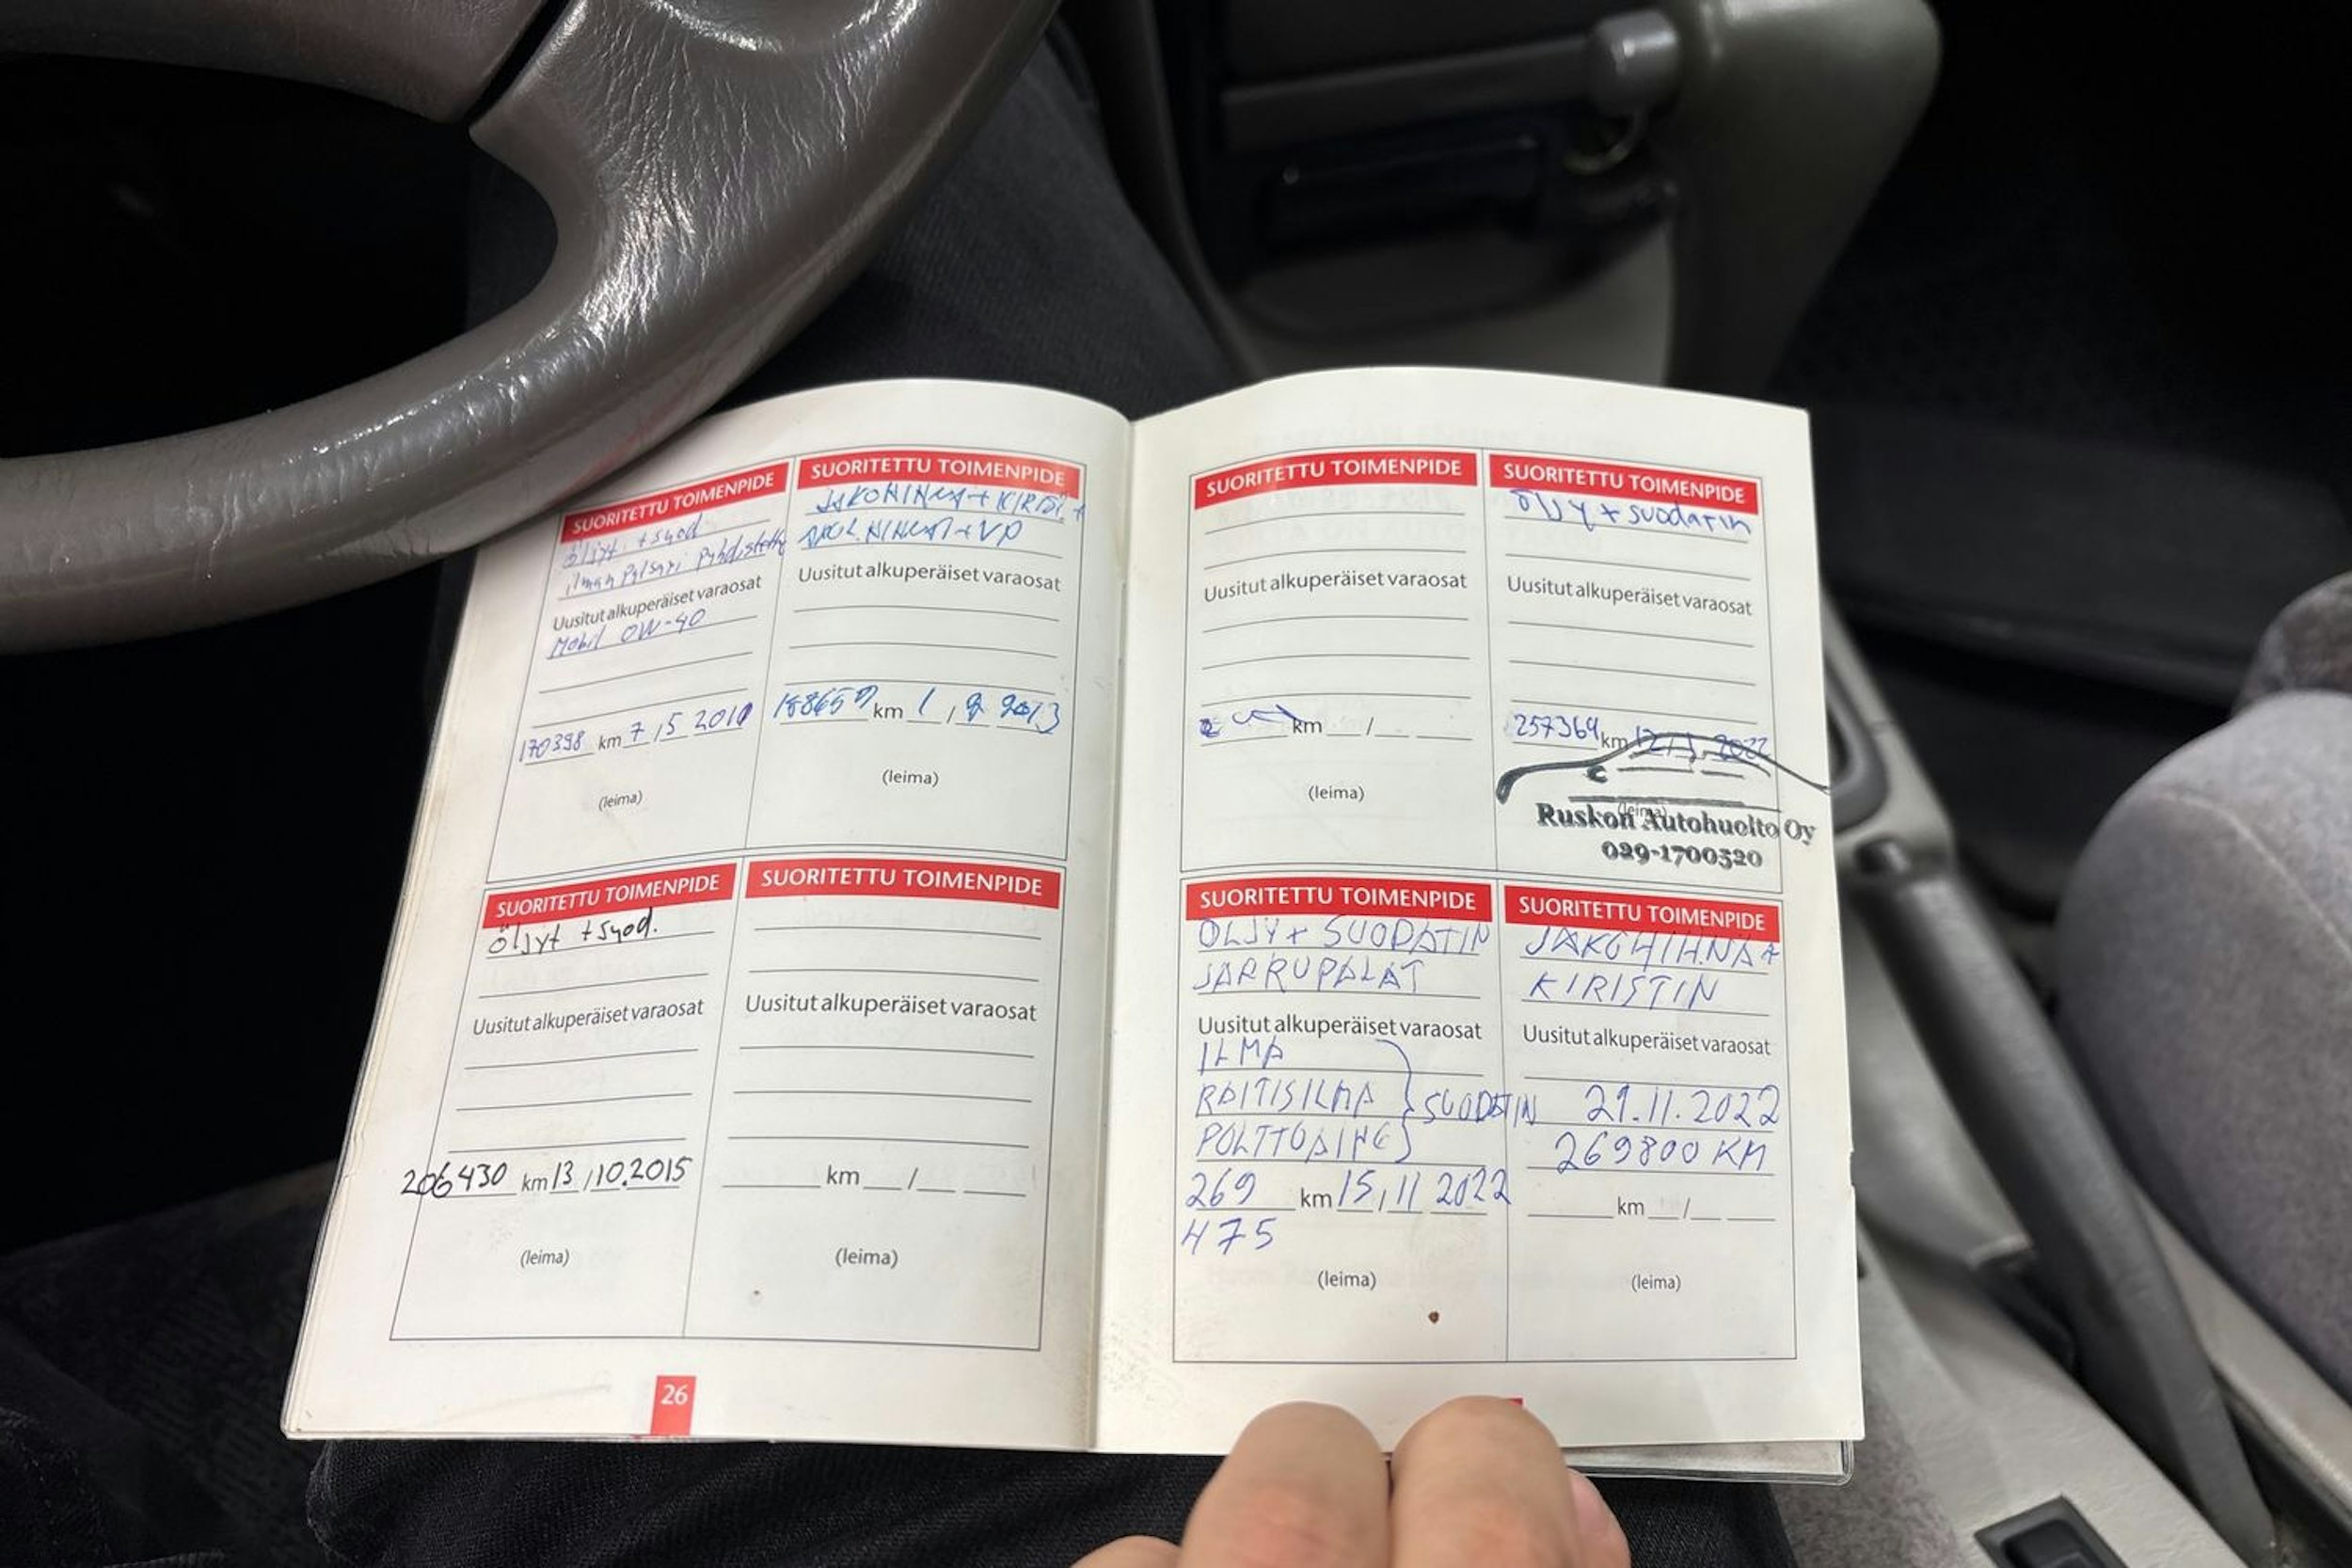 SUORITETTU TOIMENPIDE
öljyt + suod
ilman pulsari puhdistettu
Uusitut alkuperäiset varaosat
Mobil 0W-40
170398 km 7 / 5 2010
(leima)
SUORITETTU TOIMENPIDE
JAKOHIHNA + KIRIST. +
APUL. HIHNAT + VP
Uusitut alkuperäiset varaosat
km 1 / 2013
(leima)
SUORITETTU TOIMENPIDE
öljyt + suod.
Uusitut alkuperäiset varaosat
206430 km 13 / 10.2015
(leima)
SUORITETTU TOIMENPIDE
Uusitut alkuperäiset varaosat
km /
(leima)
26
SUORITETTU TOIMENPIDE
Uusitut alkuperäiset varaosat
km /
(leima)
SUORITETTU TOIMENPIDE
öljy + suodatin
Uusitut alkuperäiset varaosat
257369 km 12 / 1 2022
(leima)
Ruskon Autohuolto Oy
029-1700520
SUORITETTU TOIMENPIDE
ÖLJY + SUODATIN
JARRUPALAT
Uusitut alkuperäiset varaosat
ILMA
RAITISILMA } SUODATIN
POLTTOAINE
269 km 15 / 11 2022
475
(leima)
SUORITETTU TOIMENPIDE
JAKOHIHNA +
KIRISTIN
Uusitut alkuperäiset varaosat
21.11.2022
269800 KM
km /
(leima)